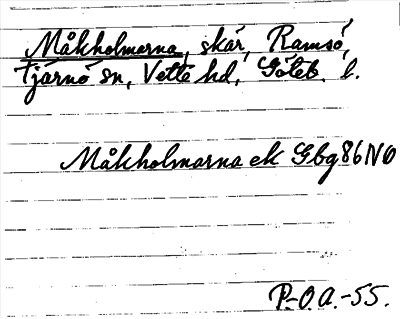 Måkholmarna, skär, Ramsö,
Tjärnö sn, Vette hd, Göteb. l.
Måkholmarna ek Gbg 86 NO
P-O.A.-55.